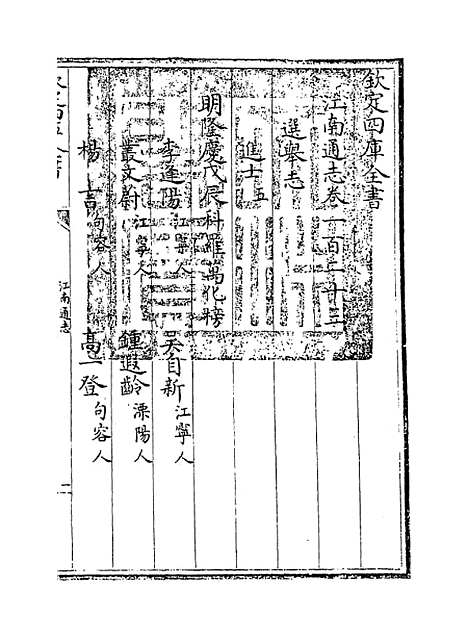 欽定四庫全書
江南通志卷一百二十三
選舉志
進士五
明隆慶戊辰科羅萬化榜
李逢陽江寧人 吳自新江寧人
叢文蔚江寧人 鍾遐齡溧陽人
楊 句容人 高一登句容人
江南通志